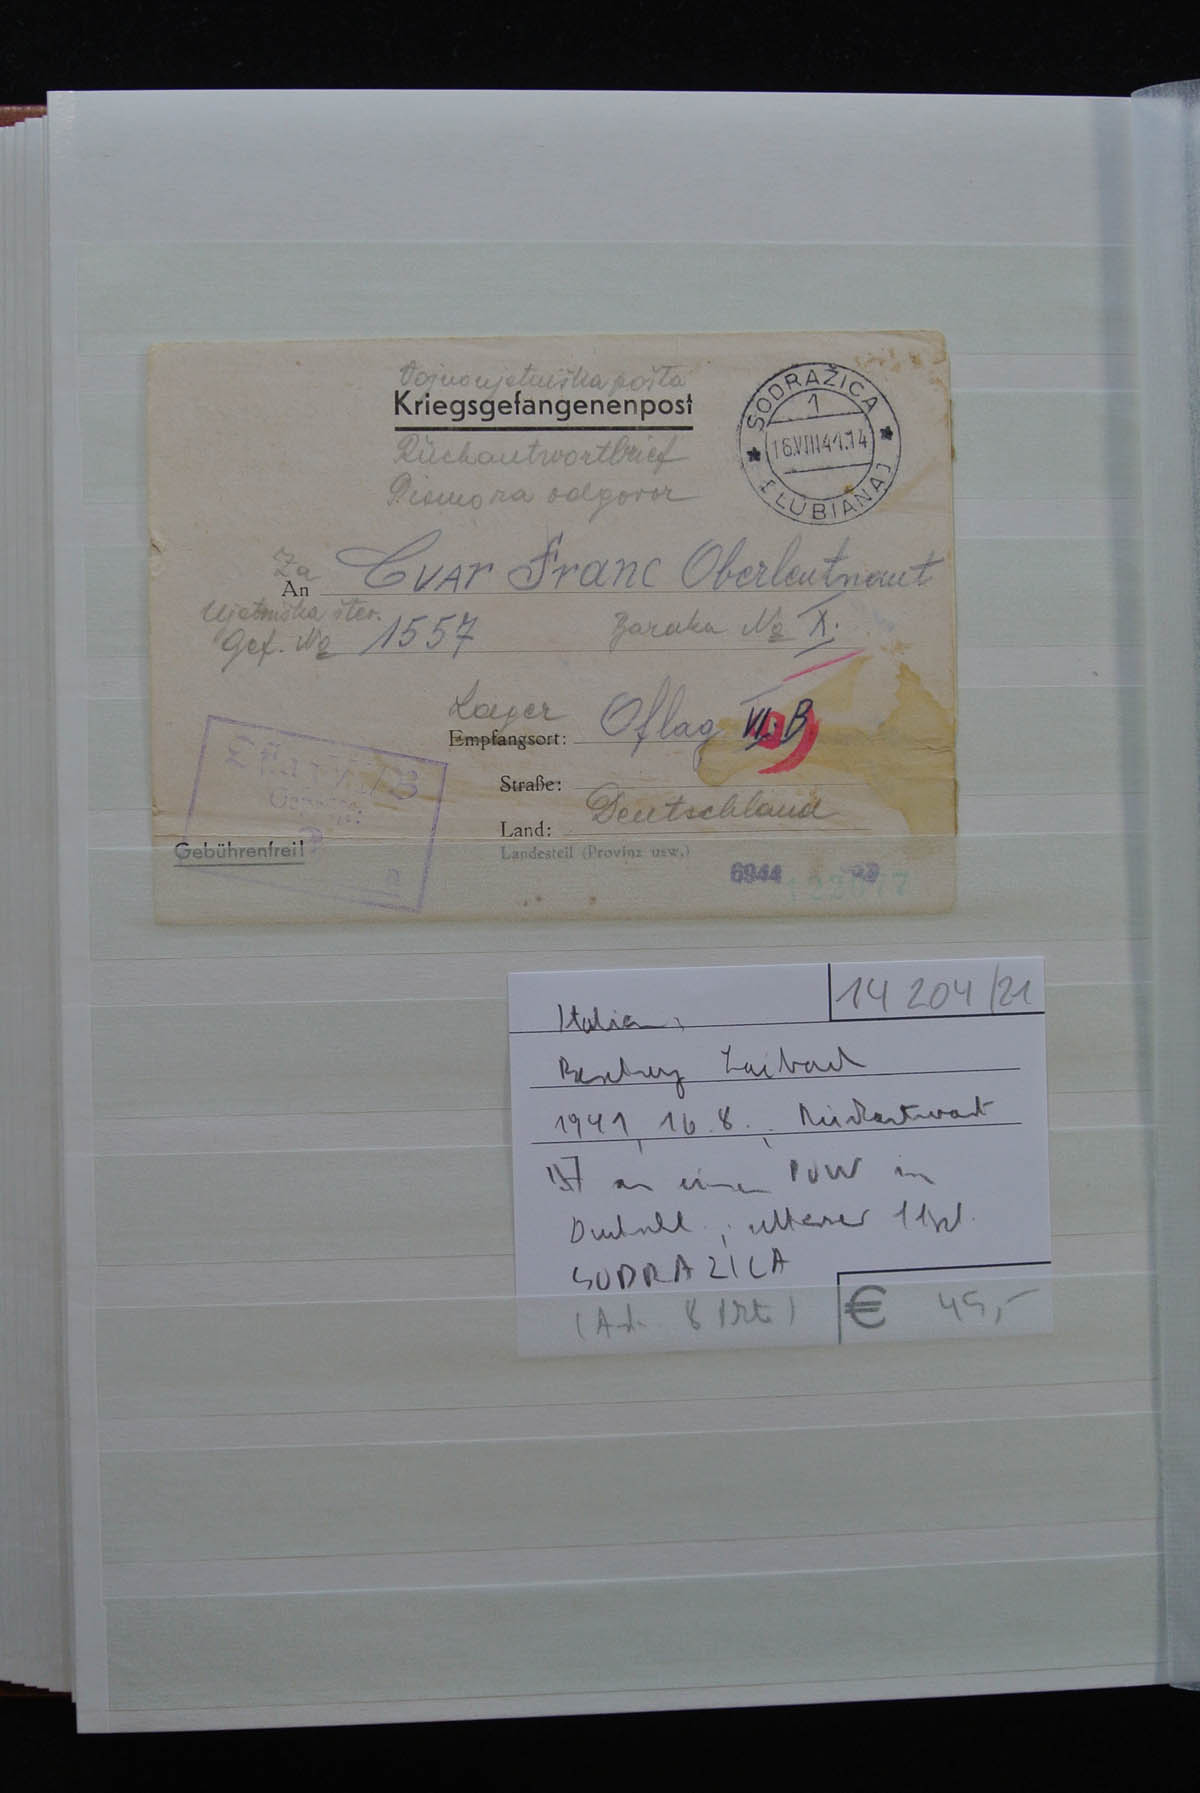 Vojnoujetniška pošta
Kriegsgefangenenpost
Rückantwortbrief
Pismo za odgovor
SODRAŽICA
1
16.VIII 41.14
(LUBIANA)
Za
An Čvar Franc Oberleutnant
Ujetniška štev.
Gef. No 1557 Baraka No X.
Lager Oflag VI. B
Empfangsort:
Straße:
Deutschland
Land:
Landesteil (Provinz usw.)
Oflag VI/B
Geprüft:
Gebührenfrei!
6944
14 204/21
Italien,
Laibach
1941, 16.8., Rückantwort
an einen POW in
SODRAZICA
€ 45,-